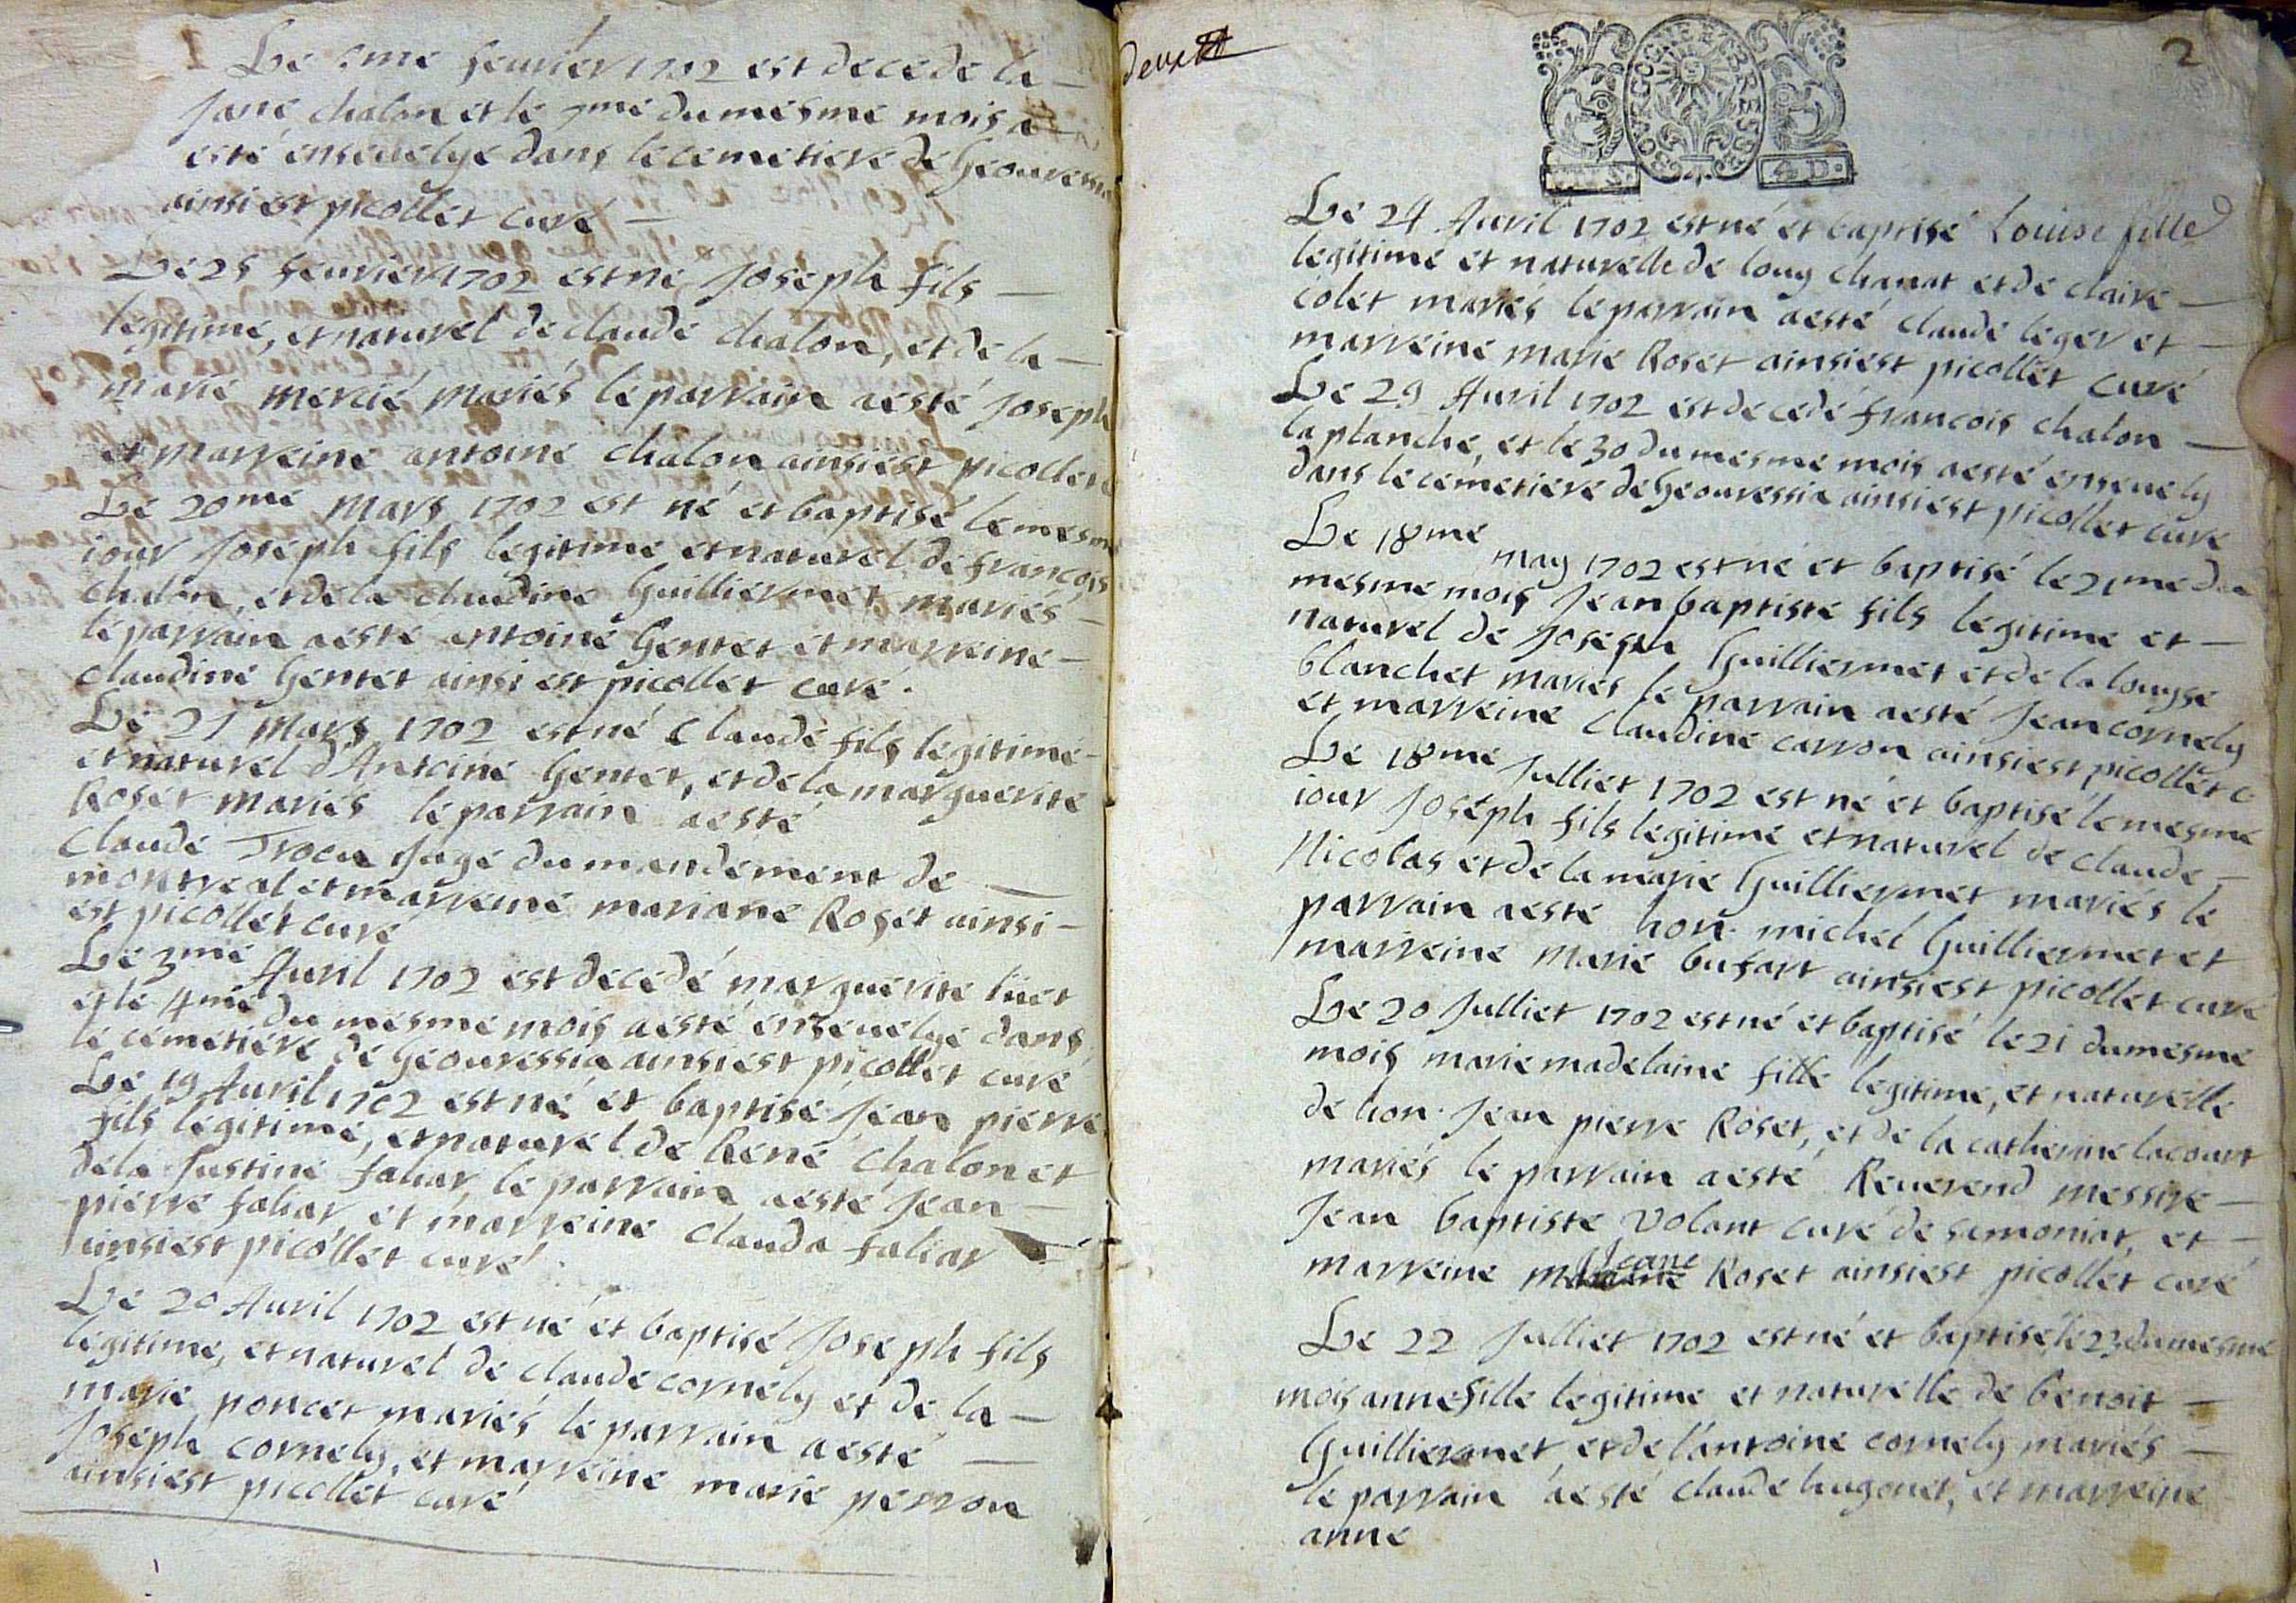 Le me feuvrier 1702 est decede la
Jane chalon et le 7me du mesme mois a
esté ensevelye dans le cemetiere de Geouressia
ainsi est picollet curé
Le 25 feuvrier 1702 est né Joseph fils
legitime, et naturel de claude chalon, et de la
marie mercié mariés le parrain aesté Joseph
et marreine antoine chalon ainsiest picollet
Le 20me Mars 1702 est né et baptisé le mesme
iour Joseph fils legitime et naturel de francois
chalon, et de la claudine Guilliermet mariés
le parrain aesté antoine Gentet et marreine
claudine Gentet ainsi est picollet curé.
Le 21 Mars 1702 est né Claude fils legitime
et naturel d'Antoine Gentet, et de la marguerite
Roset mariés le parrain aesté
Claude Trocu Juge du mandement de
montreal et marreine mariane Roset ainsi
est picollet curé
Le 3me Auril 1702 est decedé marguerite
et le 4me du mesme mois aesté enseuelye dans
le cemetiere de Geouressia ainsiest picollet curé
Le 19 Auril 1702 est né et baptisé Jean pierre
fils legitime, et naturel de René Chalon et
dela Justine faliar, le parrain aesté Jean
pierre faliar, et marreine Clauda faliar
ainsiest picollet curé.
Le 20 Auril 1702 est né et baptisé Joseph fils
legitime, et naturel de claude cornely et de la
marie poncet mariés le parrain aesté
Joseph cornely, et marreine marie perron
ainsiest picollet curé
deux
2
BOURGOGNE BRESSE
S.
D.
Le 24 Auril 1702 est né et baptisé Louise fille
legitime et naturelle de louy chanat et de claire
colet mariés le parrain aesté claude leger et
marreine marie Roset ainsiest picollet curé
Le 29 Auril 1702 est decedé francois chalon
la planche, et le 30 du mesme mois aesté enseuely
dans le cemetiere de Geouressia ainsiest picollet curé
Le 18me may 1702 est né et baptisé le 21me du
mesme mois Jean baptiste fils legitime et
naturel de Joseph Guilliermet et de la louyse
blanchet mariés le parrain aesté Jean cornely
et marreine Claudine carron ainsiest picollet c
Le 18me Julliet 1702 est né et baptisé le mesme
iour Joseph fils legitime et naturel de claude
Nicolas et de la marie Guilliermet mariés le
parrain aesté hon. michel Guilliermet et
marreine Marie bufart ainsiest picollet curé
Le 20 Julliet 1702 est né et baptisé le 21 du mesme
mois marie madelaine fille legitime, et naturelle
de hon. Jean pierre Roset, et de la catherine lacourt
mariés le parrain aesté Reuerend messire
Jean baptiste Volant curé de samoniat, et
marreine Jeane Roset ainsiest picollet curé
Le 22 Julliet 1702 est né et baptisé le 23 du mesme
mois anne fille legitime et naturelle de benoit
Guilliermet, et de l'antoine cornely mariés
le parrain aesté claude hugonet, et marreine
anne